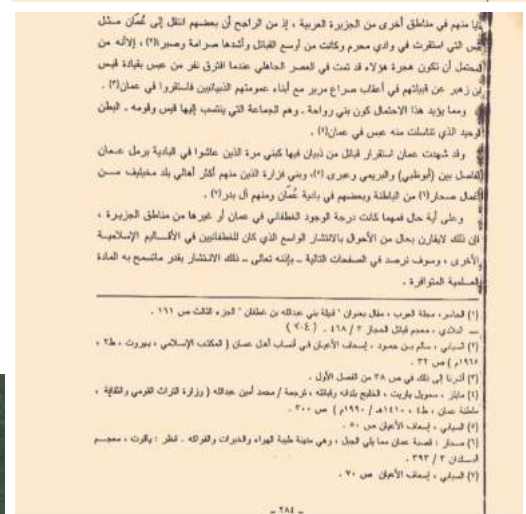 يا منهم في مناطق أخرى من الجزيرة العربية ، إذ من الراجح أن بعضهم انتقل إلى عُمان مثل
التي استقرت في وادي محرم وكانت من أوسع القبائل وأشدها صرامة وصبرا(٢) ، إلا أنه من
المحتمل أن تكون هجرة هؤلاء قد تمت في العصر الجاهلي عندما افترق نفر من عبس بقيادة قيس
بن زهير عن قبيلتهم في أعقاب صراع مرير مع أبناء عمومتهم الذبيانيين فاستقروا في عمان(٣) .
ومما يؤيد هذا الاحتمال كون بني رواحة ـ وهم الجماعة التي ينتسب إليها قيس وقومه ـ البطن
الوحيد الذي تناسلت منه عبس في عمان(٤) .
وقد شهدت عمان استقرار قبائل من ذبيان فيها كبني مرة الذين عاشوا في البادية برمل عمان
الفاصل بين (أبوظبي) والبريمي وعبري (٥)، وبني فزارة الذين منهم أكثر أهالي بلد مخيليف من
أعمال صحار(٦) من الباطنة وبعضهم في بادية عُمان ومنهم آل بدر(٧) .
وعلى أية حال فمهما كانت درجة الوجود الغطفاني في عمان أو غيرها من مناطق الجزيرة ،
فإن ذلك لايقارن بحال من الأحوال بالانتشار الواسع الذي كان للغطفانيين في الأقاليم الإسلامية
الأخرى ، وسوف نرصد في الصفحات التالية ـ بإذنه تعالى ـ ذلك الانتشار بقدر ماتسمح به المادة
العلمية المتوافرة .
(١) الجاسر، مجلة العرب ، مقال بعنوان " قبيلة بني عبدالله بن غطفان " الجزء الثالث ص ١٦١ .
ـ البلادي ، معجم قبائل الحجاز ٣ / ٤٦٨ . ( ٣٠٤ )
(٢) السيابي ، سالم بن حمود ، إسعاف الأعيان في أنساب أهل عمان ( المكتب الإسلامي ، بيروت ، ط٢ ،
١٩٦٥م ) ص ٣٢ .
(٣) أشرنا إلى ذلك في ص ٣٨ من الفصل الأول .
(٤) مايلز ، صمويل باريت ، الخليج بلدانه وقبائله ، ترجمة / محمد أمين عبدالله ( وزارة التراث القومي والثقافة ،
سلطنة عمان ، ط٤ ، ١٤١٠هـ / ١٩٩٠م ) ص ٣٠٠ .
(٥) السيابي ، إسعاف الأعيان ص ٥٠ .
(٦) صحار : قصبة عمان مما يلي الجبل ، وهي مدينة طيبة الهواء والخيرات والفواكه . انظر : ياقوت ، معجم
البلدان ٣ / ٣٩٣ .
(٧) السيابي ، إسعاف الأعيان ص ٧٠ .
ـ ٢٨٤ ـ